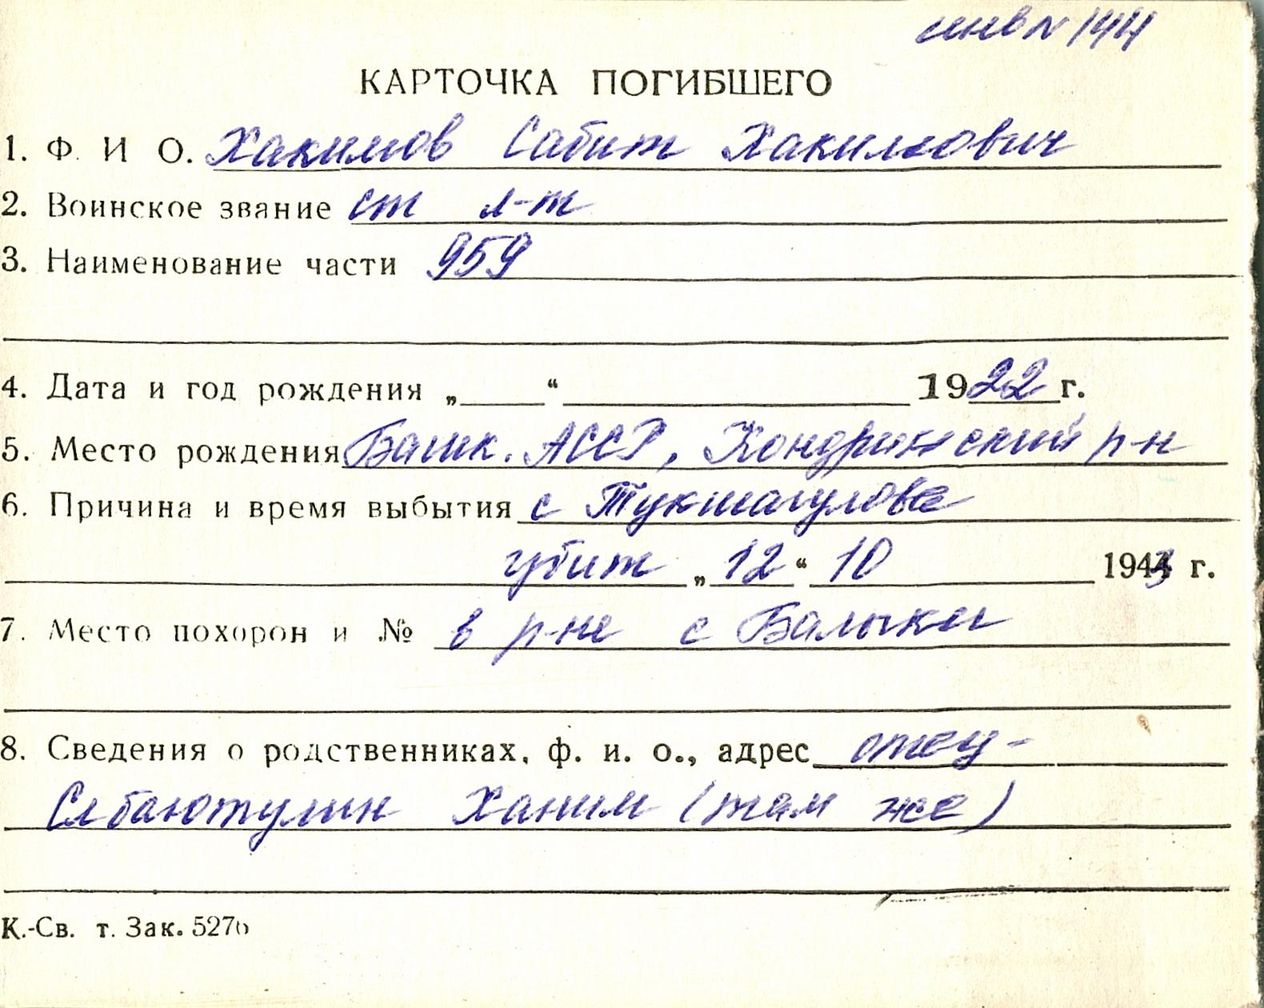 инв № 144
КАРТОЧКА ПОГИБШЕГО
1. Ф. И О. Хакимов Сабит Хакимович
2. Воинское звание ст л-т
3. Наименование части 959
4. Дата и год рождения „ “ 1922 г.
5. Место рождения Башк. АССР, Кондринский р-н
6. Причина и время выбытия с Тукшагулова
убит „12“ 10 1943 г.
7. Место похорон и № в р-не с Балыки
8. Сведения о родственниках, ф. и. о., адрес отец-
Ханим (там же)
К.-Св. т. Зак. 5276